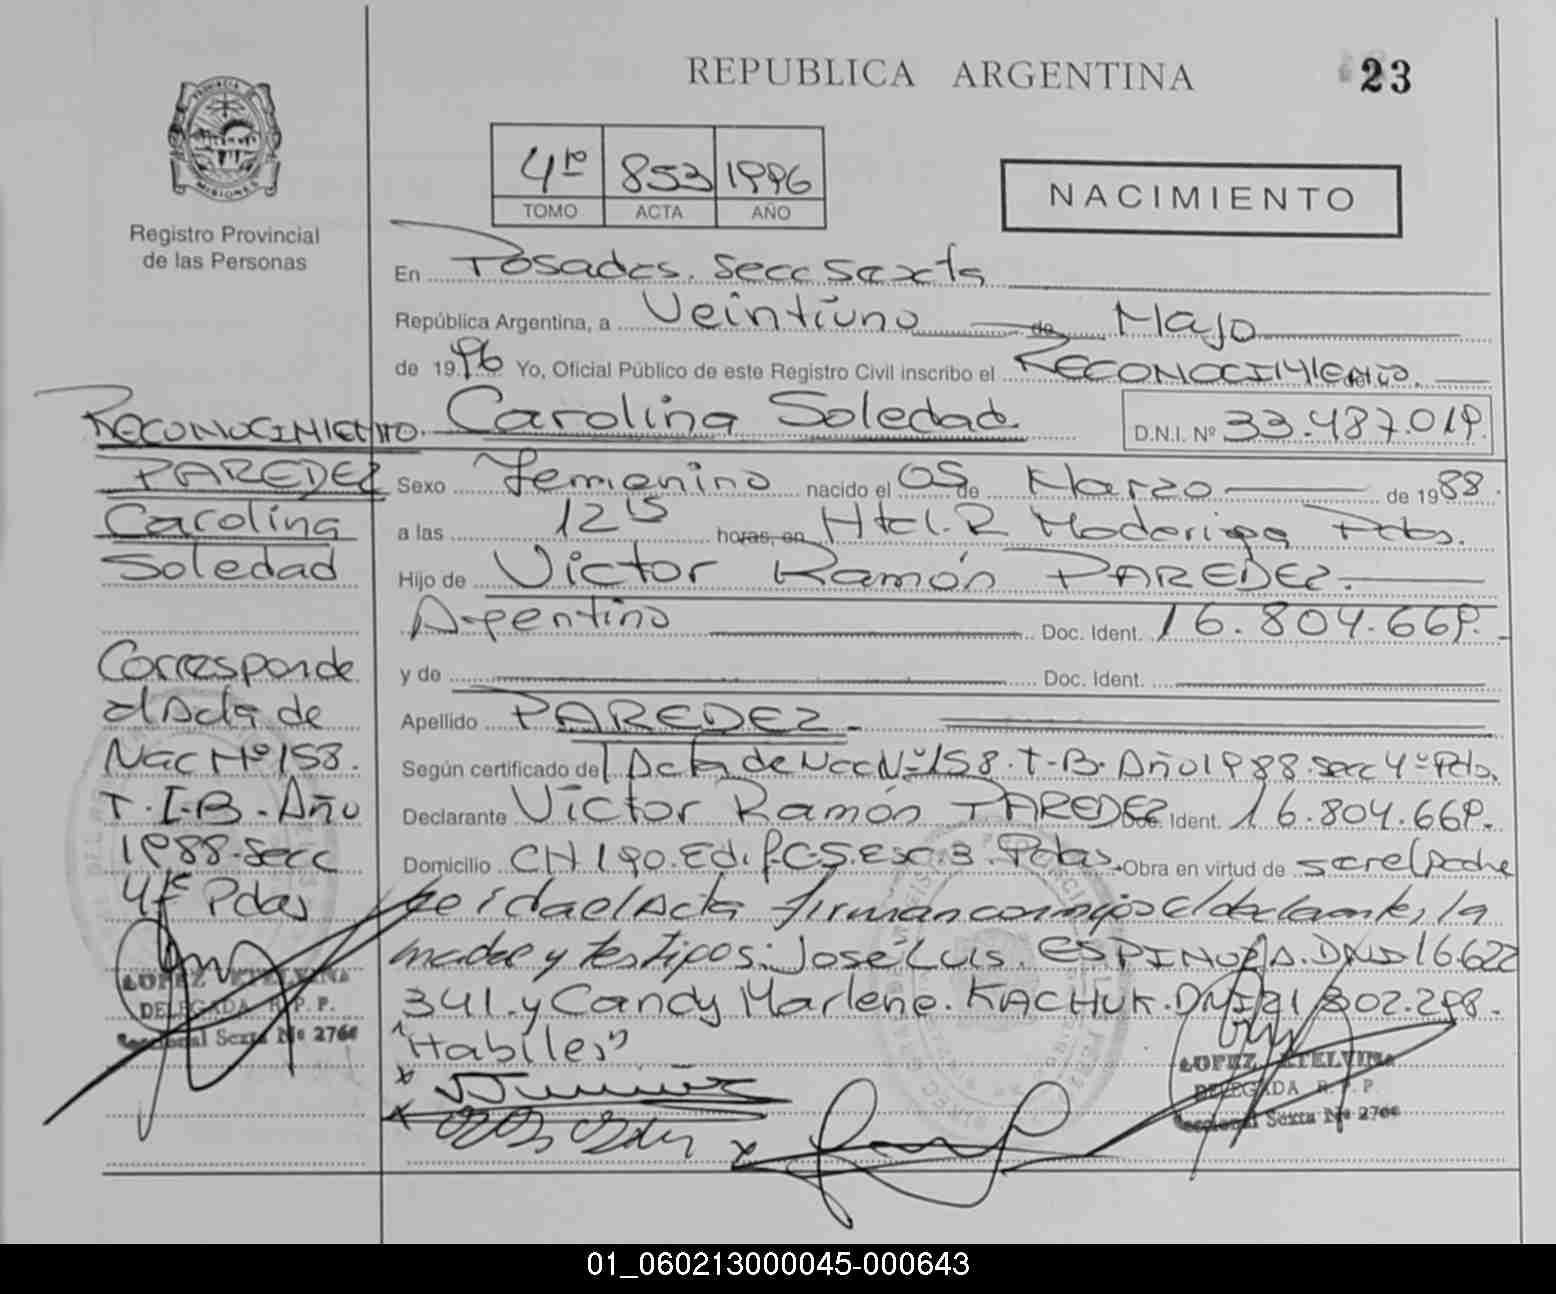 REPUBLICA ARGENTINA
23
PROVINCIA DE
MISIONES
Registro Provincial
de las Personas
4to 853 1996
TOMO ACTA AÑO
NACIMIENTO
En Posadas. Secc Sexta
República Argentina, a Veintiuno de Mayo
de 1996 Yo, Oficial Público de este Registro Civil inscribo el RECONOCIMIENTO.
Carolina Soledad D.N.I. Nº 33.487.019.
Sexo Femenino nacido el 05 de Marzo de 1988.
a las 12 15 horas, en Htal. R Madariaga Pdas.
Hijo de Victor Ramón PAREDEZ.
Argentino Doc. Ident. 16.804.669.
y de Doc. Ident.
Apellido PAREDEZ.
Según certificado del Acta de Nac Nº 158. T-B. Año 1988. Secc 4º Pdas.
Declarante Victor Ramón PAREDEZ Doc. Ident. 16.804.669.
Domicilio CH 190. Ed. f. C-5. Esc. 3. Pdas. Obra en virtud de ser el padre
leida el Acta firman conmigo el declarante, la
madre y testigos: José Luis. ESPINOZA. DNI 16.622
341. y Candy Marlene. KACHUK. DNI 21 802.298.
"Habiles"
x
x
x
LOPEZ ETELVINA
DELEGADA R. P. P.
Seccional Sexta Nº 2766
RECONOCIMIENTO.
PAREDEZ
Carolina
Soledad
Corresponde
al Acta de
Nac Nº 158.
T. I-B. Año
1988. Secc
4ta Pdas
LOPEZ ETELVINA
DELEGADA R. P. P.
Seccional Sexta Nº 2766
01_060213000045-000643